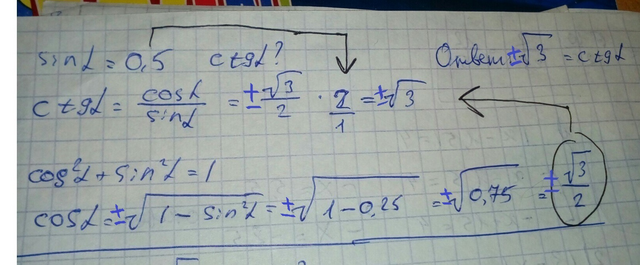 sinα = 0,5   ctgα?   Ответ ±√3 = ctgα
ctgα = cosα/sinα = ±√3/2 · 2/1 = ±√3
cos²α + sin²α = 1
cosα = ±√(1 - sin²α) = ±√(1 - 0,25) = ±√0,75 = ±√3/2